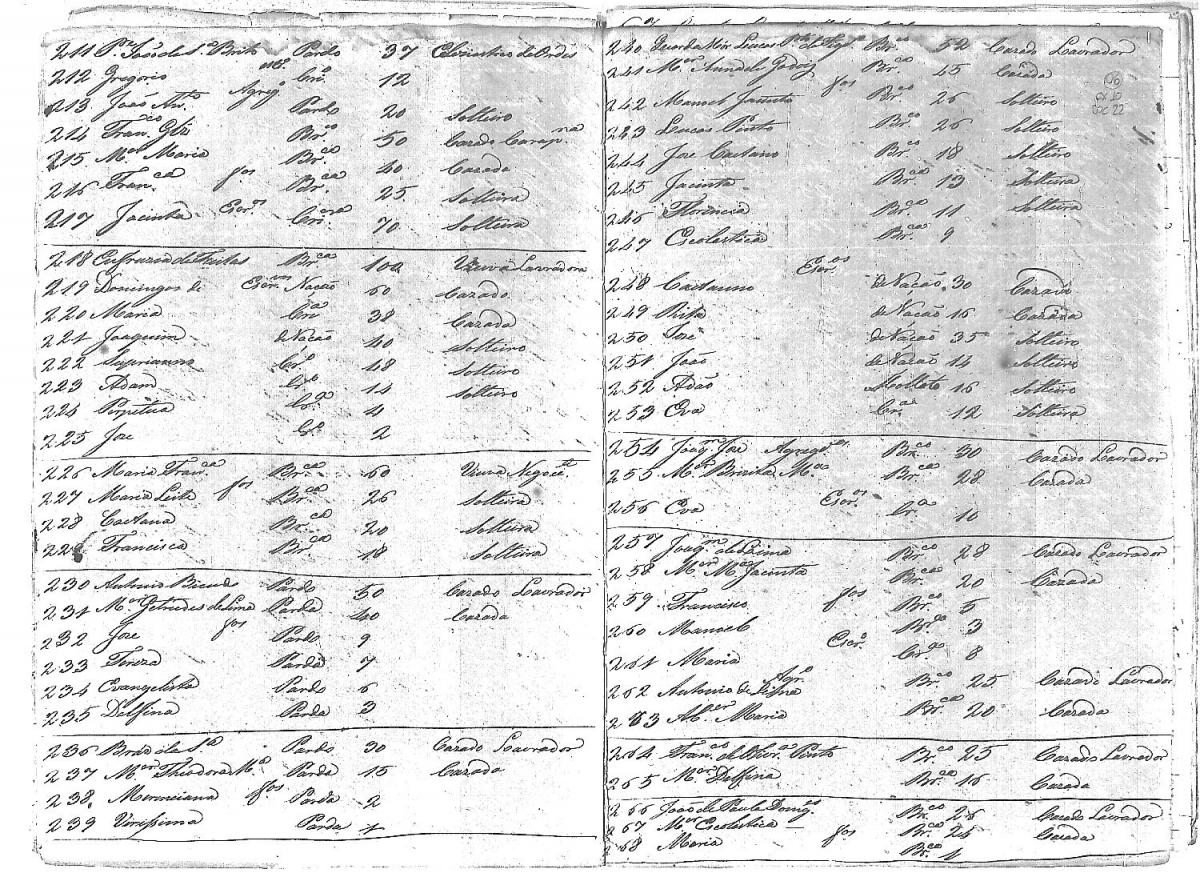 211 Pe. João da S.a Brito Pardo 37 de Ordes
212 Gregorio esc.o Cri.o 12
Agreg.
213 João An.to Pardo 20 Solteiro
214 Fran.co Br.co 50 Cazado
215 M.er Maria Br.ca 40 Cazada
216 Fran.ca f.os Br.ca 25 Solteira
217 Jacinta Escr.os Cri.ra 70 Solteira
218 Eufrazia de Freitas Br.ca 100 Viuva Lavradora
219 Domingos de Escr.vos Nação 60 Cazado
220 Maria Cri.a 38 Cazada
221 Joaquim de Nação 40 Solteiro
222 Suprianno Cr.o 48 Solteiro
223 Adam Cr.o 14 Solteiro
224 Perpetua Cr.a 4
225 Joze Cr.o 2
226 Maria Fran.ca Br.ca 60 Viuva Negoc.te
227 Maria Leite f.os Br.ca 26 Solteira
228 Caetana Br.ca 20 Solteira
229 Francisca Br.ca 18 Solteira
230 Antonio Bicudo Pardo 50 Cazado Lavrador
231 M.er Getrudes de Lima Parda 40 Cazada
232 Joze f.os Pardo 9
233 Tereza Parda 7
234 Evangelista Pardo 6
235 Delfina Parda 3
236 Bras da S.a Pardo 30 Cazado Lavrador
237 M.er Theodora M.a Parda 15 Cazada
238 Merenciana f.os Parda 2
239 Virissima Parda 1
240 Guarda Mór Lucas Br.co 52 Cazado Lavrador
241 M.er Anna de Godoiz Br.ca 45 Cazada
242 Manoel Jacinto f.os Br.co 26 Solteiro
243 Lucas Pinto Br.co 26 Solteiro
244 Joze Caetano Br.co 18 Solteiro
245 Jacinta Br.ca 13 Solteira
246 Florencia Br.ca 11 Solteira
247 Escolastica Br.ca 9
Escr.os
248 Caetanno de Nação 30 Cazado
249 Rita de Nação 16 Cazada
250 Joze de Nação 35 Solteiro
251 João de Nação 14 Solteiro
252 Adão Molleto 16 Solteiro
253 Eva Cr.a 12 Solteira
254 Joaq.m Joze Agreg.os Br.co 30 Cazado Lavrador
255 M.er Benvita M.a Br.ca 28 Cazada
256 Eva Escr.os Cr.a 10
257 Joaq.m de Lima Br.co 28 Cazado Lavrador
258 M.er M.a Jacinta Br.ca 20 Cazada
259 Francisco f.os Br.co 5
260 Manoel Br.co 3
261 Maria Escr.a Cr.a 8
Agr.
262 Antonio de Br.co 25 Cazado Lavrador
263 M.er Maria Br.ca 20 Cazada
264 Fran.co de Pinto Br.co 25 Cazado Lavrador
265 M.er Delfina Br.ca 16 Cazada
266 João de Paula Dom.es Br.co 26 Cazado Lavrador
267 M.er Escolastica Br.ca 24 Cazada
268 Maria f.os Br.ca 1